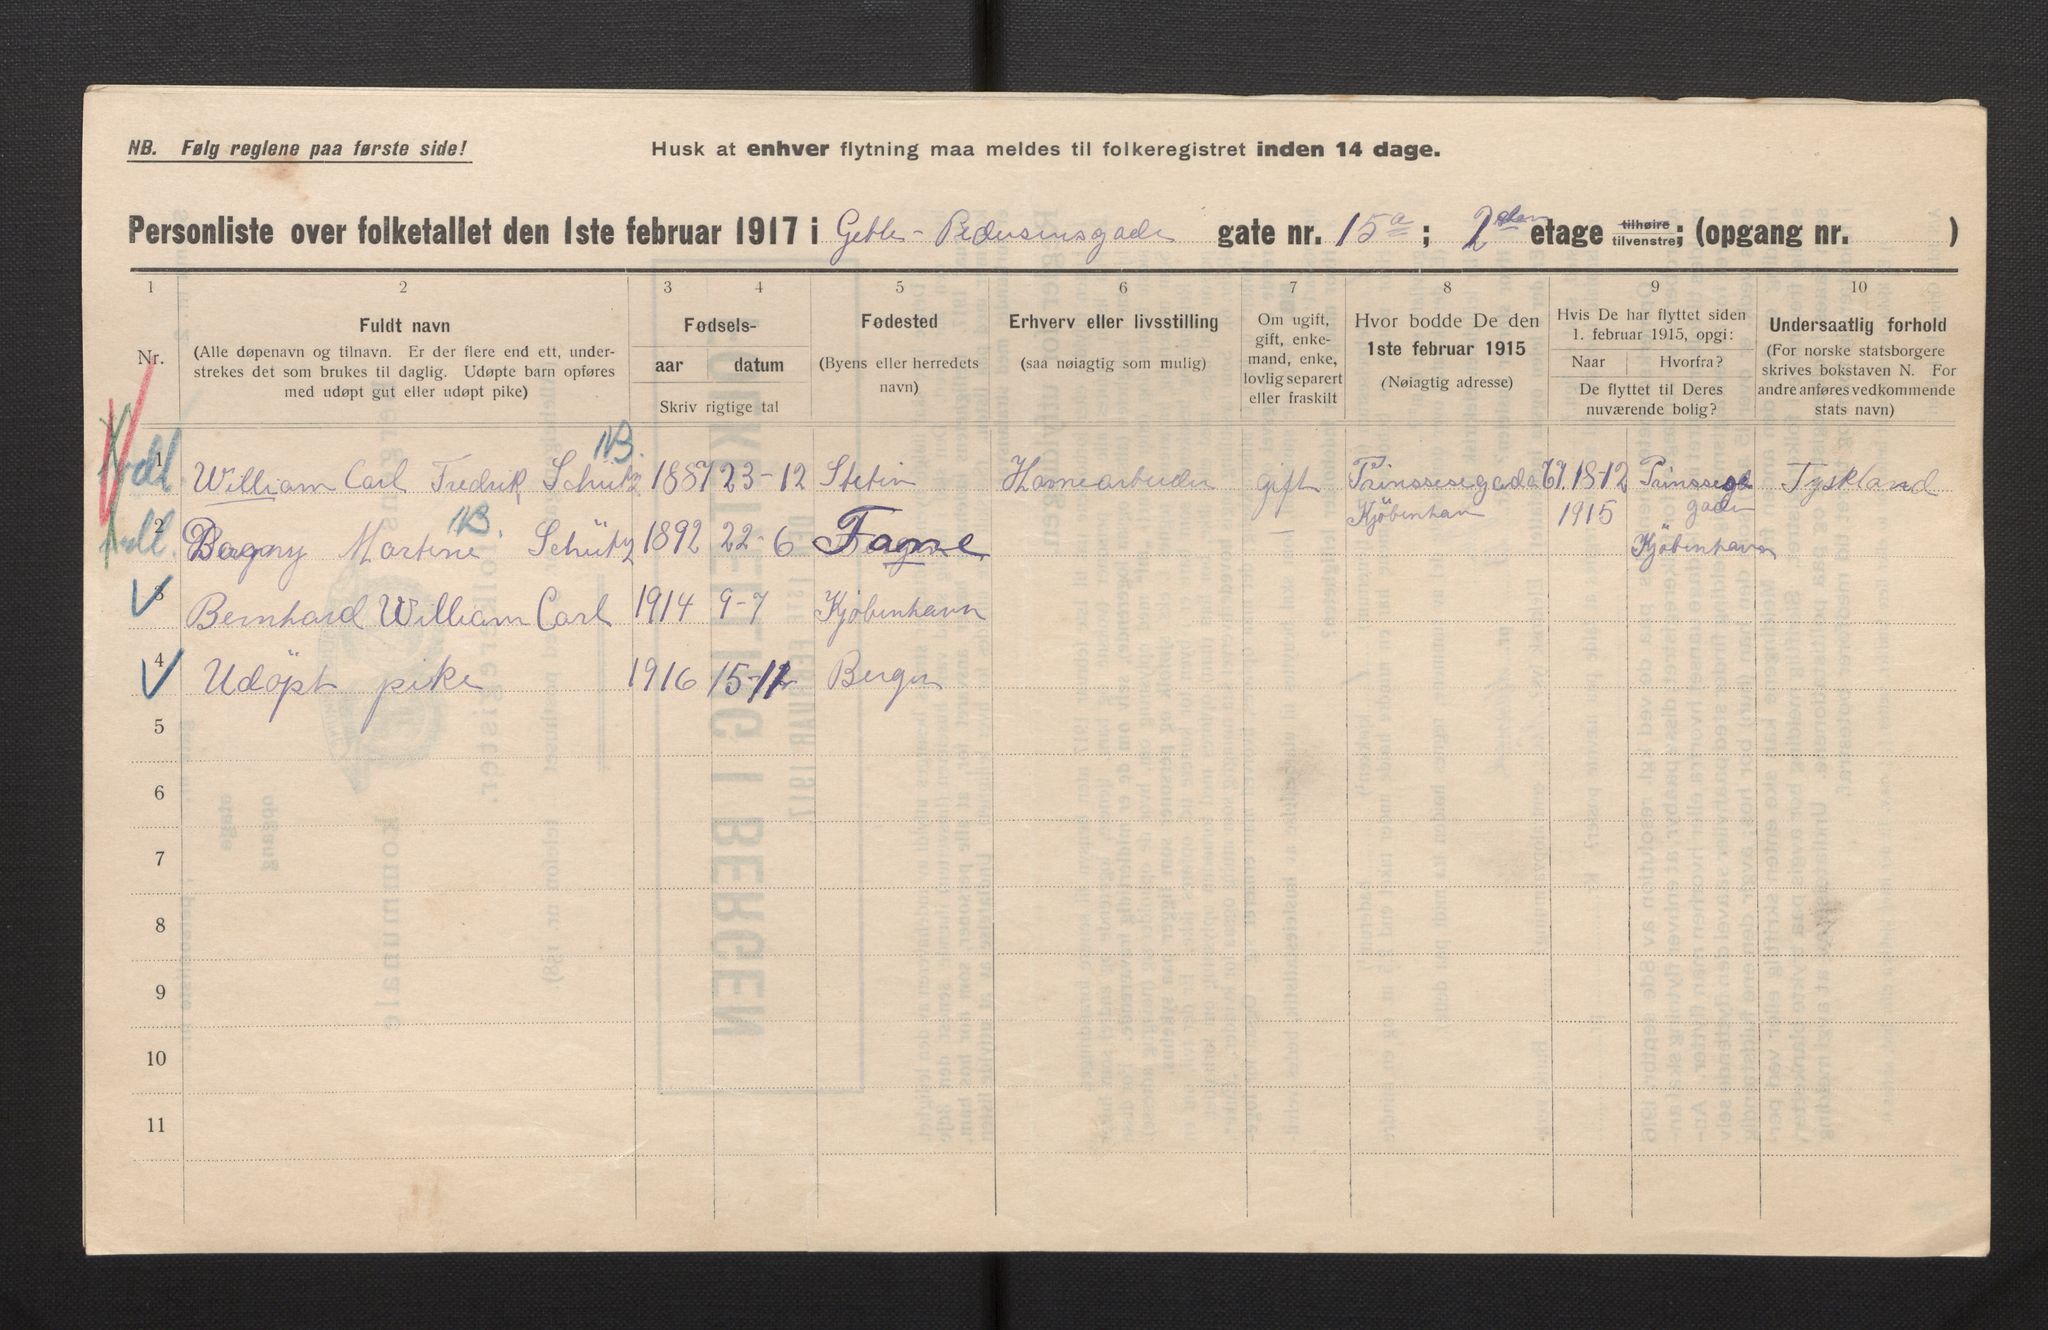 NB. Følg reglene paa første side!
Husk at enhver flytning maa meldes til folkeregistret inden 14 dage.
Personliste over folketallet den 1ste februar 1917 i Geble-Pedersensgade gate nr. 15a; 2den etage tilhøire tilvenstre; (opgang nr. )
1 2 3 4 5 6 7 8 9 10
Nr.
Fuldt navn
(Alle døpenavn og tilnavn. Er der flere end ett, under-
strekes det som brukes til daglig. Udøpte barn opføres
med udøpt gut eller udøpt pike)
Fødsels-
aar datum
Skriv rigtige tal
Fødested
(Byens eller herredets
navn)
Erhverv eller livsstilling
(saa nøiagtig som mulig)
Om ugift,
gift, enke-
mand, enke,
lovlig separert
eller fraskilt
Hvor bodde De den
1ste februar 1915
(Nøiagtig adresse)
Hvis De har flyttet siden
1. februar 1915, opgi:
Naar Hvorfra?
De flyttet til Deres
nuværende bolig?
Undersaatlig forhold
(For norske statsborgere
skrives bokstaven N. For
andre anføres vedkommende
stats navn)
NB.
1 William Carl Fredrik Schütz 1887 23-12 Stetin Havnearbeider gift Prinssesegade 67 18-12 Prinssese Tyskland
Kjöbenhavn 1915 gaden
NB.
2 Dagny Martine Schütz 1892 22-6 Fagne Kjöbenhavn
3 Bernhard William Carl 1914 9-7 Kjöbenhavn
4 Udöpt pike 1916 15-12 Bergen
5
6
7
8
9
10
11